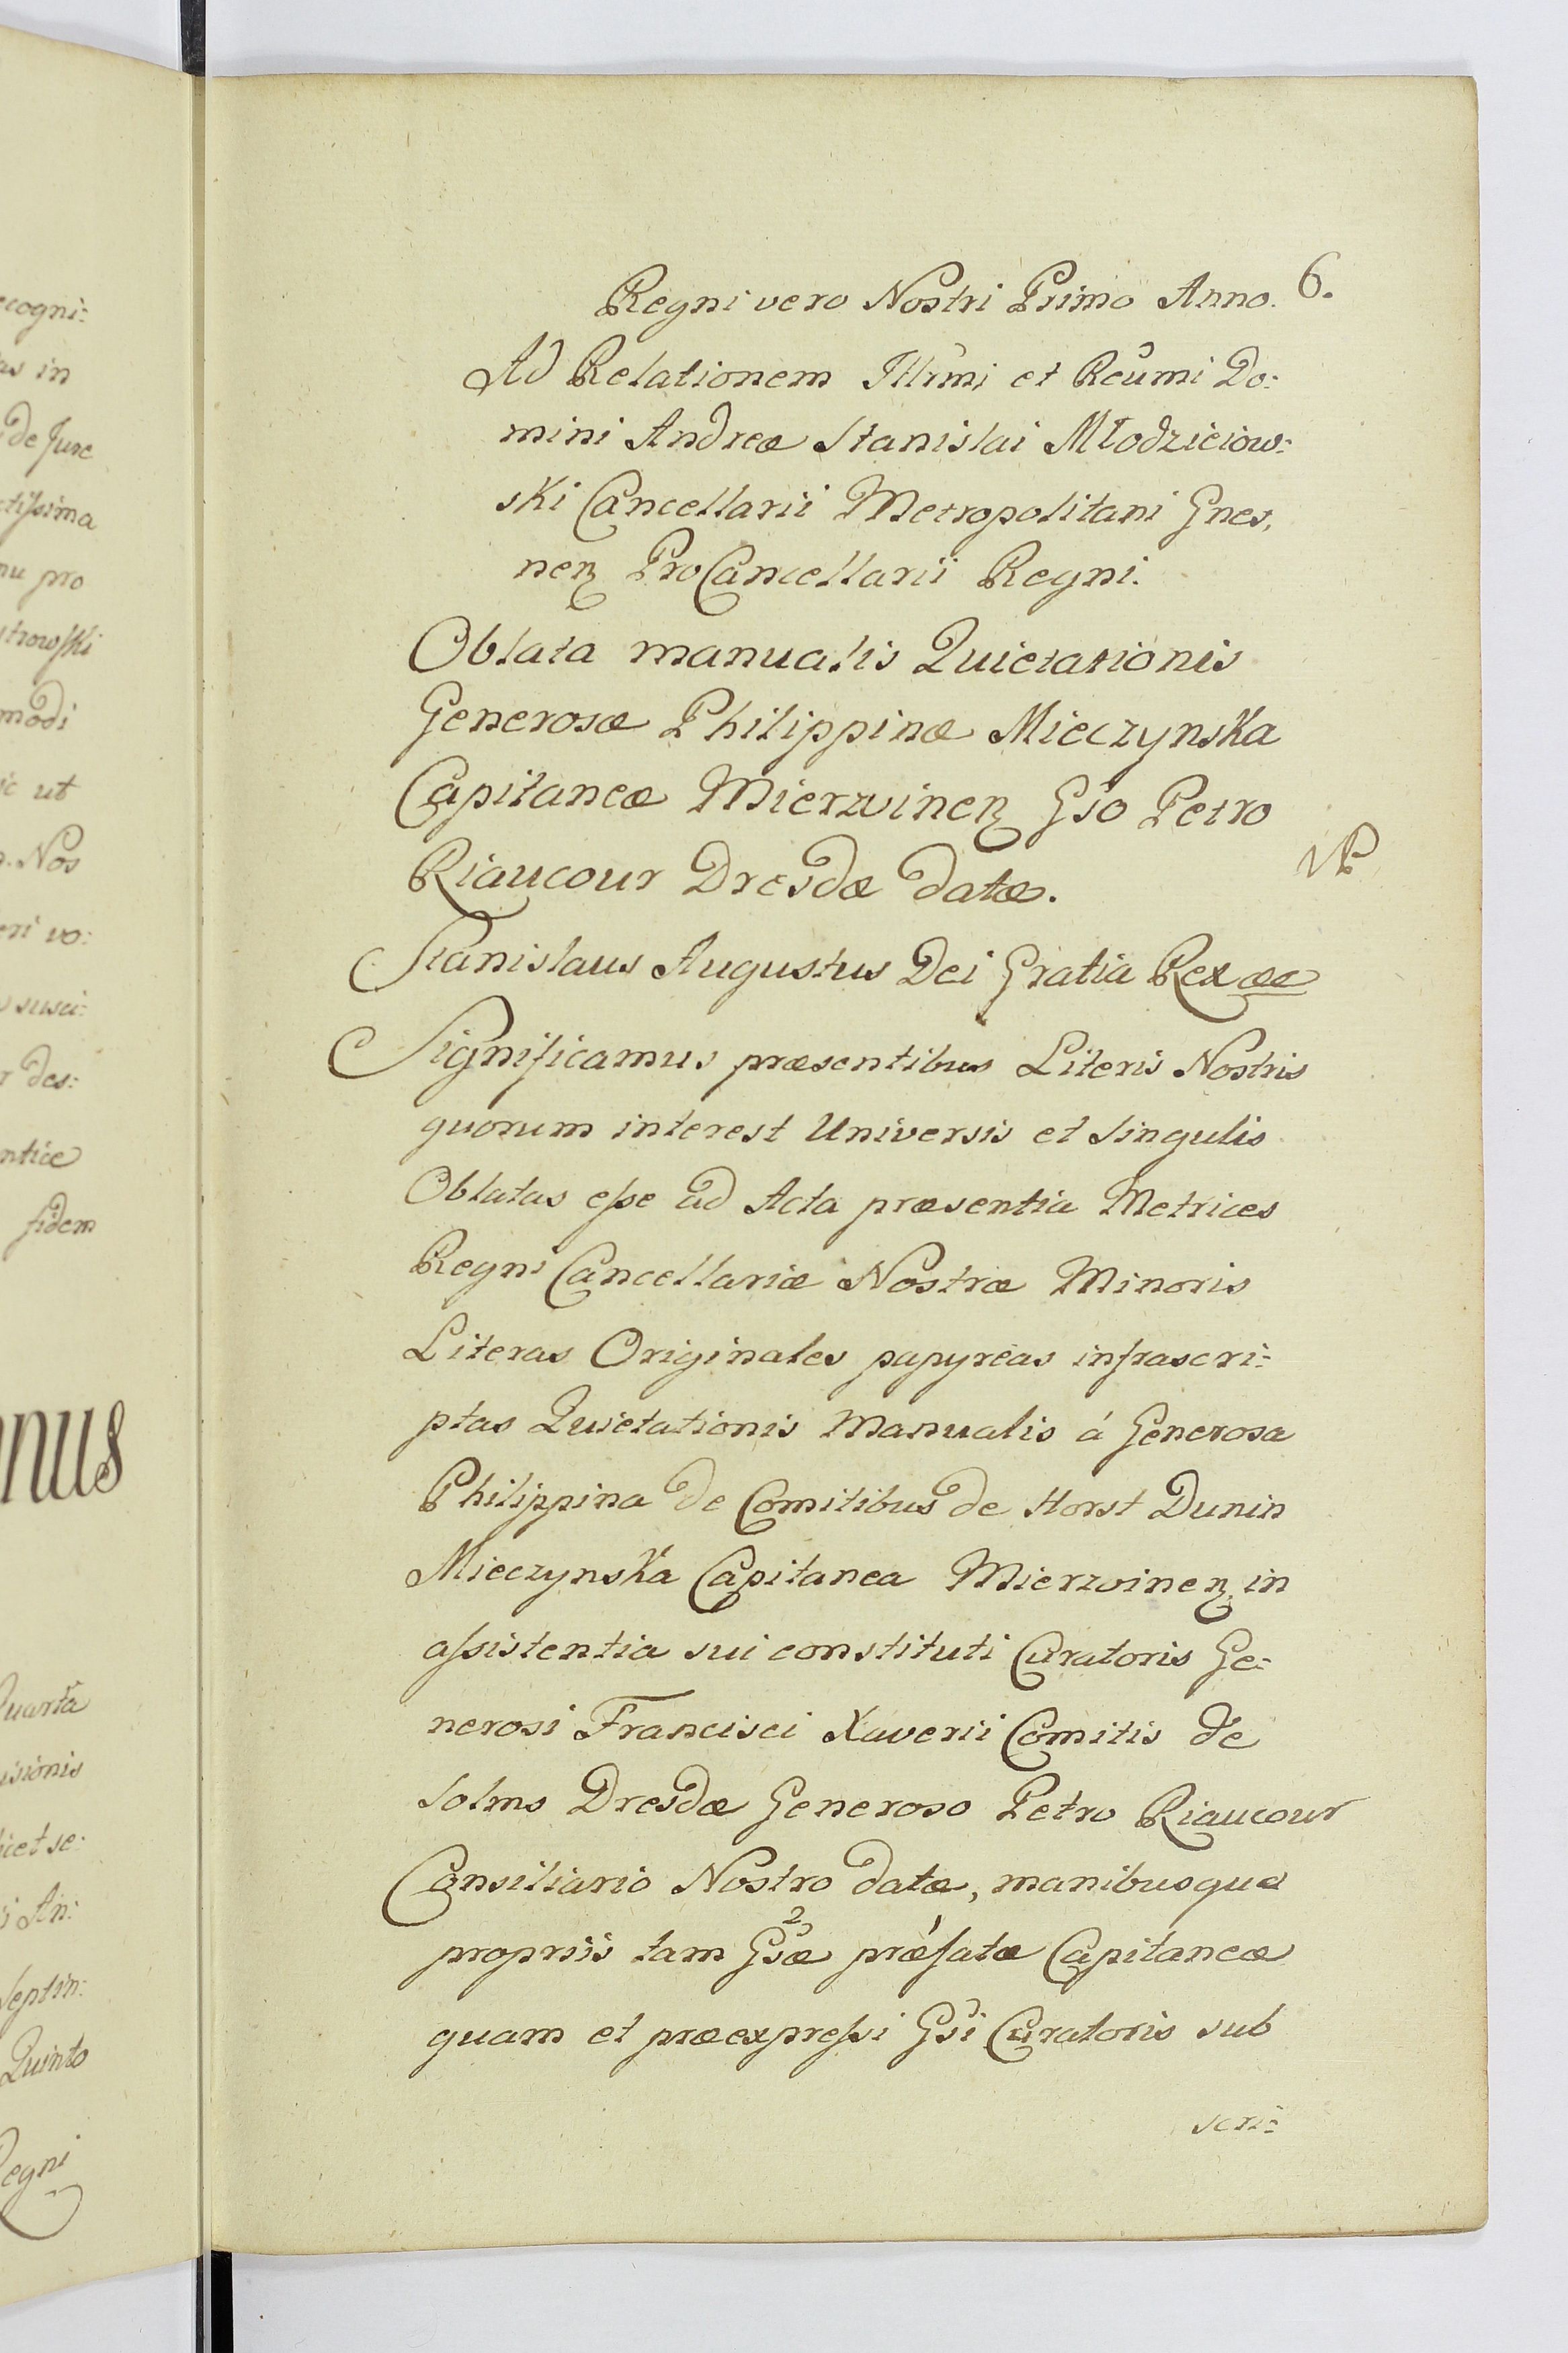 6.
Regni vero Nostri Primo Anno.
Ad Relationem Illrmi et Reumi Do:
mini Andreæ Stanislai Młodzieiow:
ski Cancellarii Metropolitani Gnes,
nen ProCancellarii Regni.
Oblata manualis Quietationis
Generosæ Philippinæ Mieczynska
Capitaneæ Mierzwinen Gso Petro
Riaucour Dresdæ datæ.
Stanislaus Augustus Dei Gratia Rex &c
Significamus præsentibus Literis Nostris
quorum interest Universis et singulis
Oblatas eſse ad Acta præsentia Metrices
Regni Cancellariæ Nostræ Minoris
Literas Originales papyreas infrascri:
ptas Quietationis Manualis á Generosa
Philippina de Comitibus de Horst Dunin
Mieczynska Capitanea Mierzwinen in
aſsistentia sui constituti Curatoris Ge:
nerosi Francisci Xaverii Comitis de
Solms Dresdæ Generoso Petro Riaucour
Consiliario Nostro datæ, manibusque
propriis tam Gsæ præfatæ Capitaneæ
quam et præexpreſsi Gsi Curatoris sub
scri:
ecogni:
as in
de Jure
ctiſsima
nu pro
strowſki
modi
ic ut
. Nos
eri vo:
susci:
r des:
ntice
fidem
nus
Quarta
isionis
licet se:
i An:
Septin:
Quinto
Regni